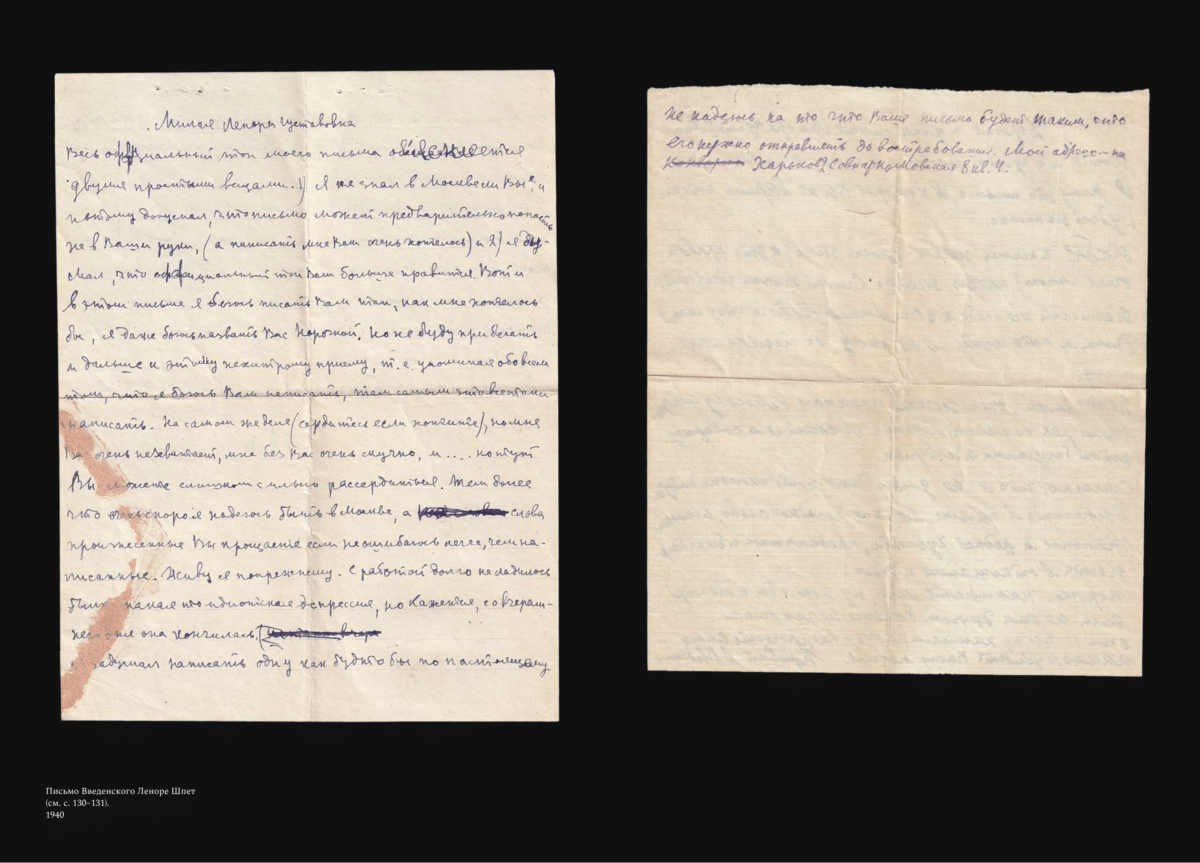 Милая Ленора Густавовна
Весь оффициальный тон моего письма объясняется
двумя простыми вещами. 1) Я не знал в Москве ли Вы и
потому допускал, что письмо может предварительно попасть
не в Ваши руки, (а написать мне Вам очень хотелось) и 2) я ду-
мал, что оффициальный тон Вам больше нравится. Вот и
в этом письме я боюсь писать Вам так, как мне хотелось
бы, я даже боюсь назвать Вас Норочкой. Но не буду прибегать
и дальше к этому нехитрому приему, т.е. упоминая обо всем
том, что я боюсь Вам написать, тем самым это всё-таки
написать. На самом же деле (сердитесь если хотите), но мне
Вас очень не хватает, мне без Вас очень скучно, и .... но тут
Вы можете слишком сильно рассердиться. Тем более
что очень скоро я надеюсь быть в Москве, а слова
произнесенные Вы прощаете если не ошибаюсь легче, чем на-
писанные. Живу я попрежнему. С работой долго не ладилось
была какая то идиотская депрессия, но кажется, со вчераш-
него дня она кончилась.
задумал написать одну как будто бы по настоящему
не надеюсь на то что Ваше письмо будет таким, что
его нужно отправлять до востребования. Мой адрес на
Харьков, Совнаркомовская 8 кв. 4.
Письмо Введенского Леноре Шпет
(см. с. 130–131).
1940